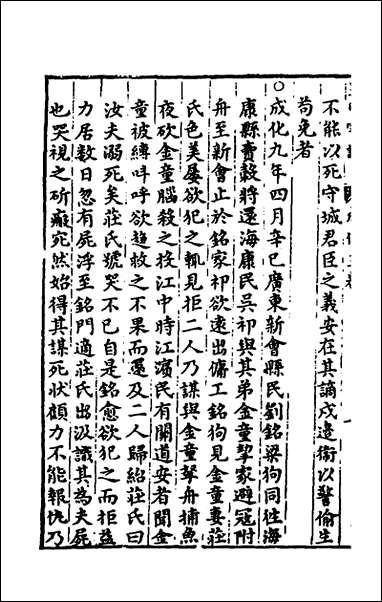 不能以死守城君臣之義安在其謫戍邊衛以警偷生
苟免者
○成化九年四月辛巳廣東新會縣民劉銘梁狗同往海
康縣賣穀將還海康民吳祁與其弟金童挈家避寇附
舟至新會止於銘家祁欲遠出傭工銘狗見金童妻莊
氏色美屢欲犯之輒見拒二人乃謀與金童拏舟捕魚
夜砍金童腦殺之投江中時江濱民有關道安者聞金
童被縛呼欲趋救之不果而還及二人歸紿莊氏曰
汝夫溺死矣莊氏號哭不已自是銘愈欲犯之而拒益
力居數日忽有屍浮至銘門適莊氏出汲識其為夫屍
也哭視之斫癥宛然始得其謀死狀顧力不能報仇乃